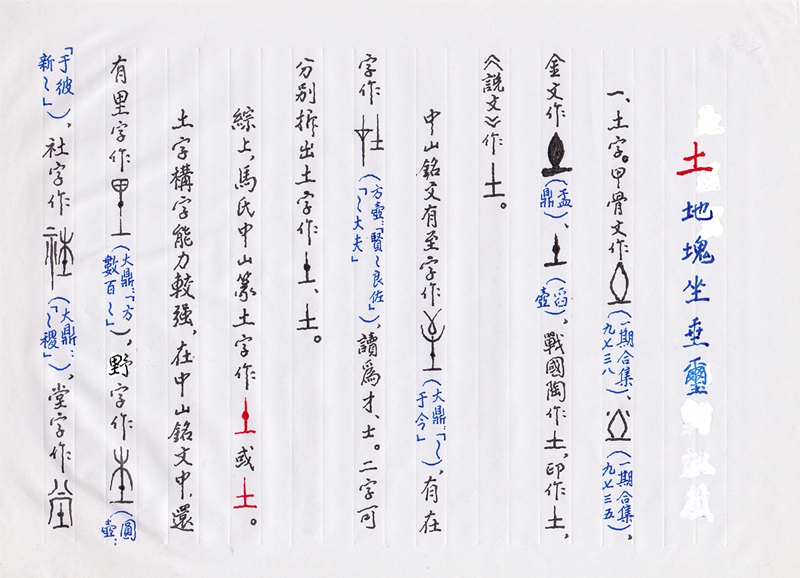 土地塊坐垂璽
一、土字。甲骨文作（一期合集九七三八）、（一期合集九七三五），
金文作（盂鼎）、（舀壺），戰國陶作土，印作土，
《說文》作土。
中山銘文有至字作（大鼎：「～于今」），有在
字作（方壺：「賢～良佐」，「～大夫」），讀爲才、士。二字可
分別拆出土字作土、土。
綜上，馬氏中山篆土字作土或土。
土字構字能力較强，在中山銘文中，還
有里字作（大鼎：「方數百～」），野字作（圓壺：
「于彼新～」），社字作（大鼎：「～稷」），堂字作